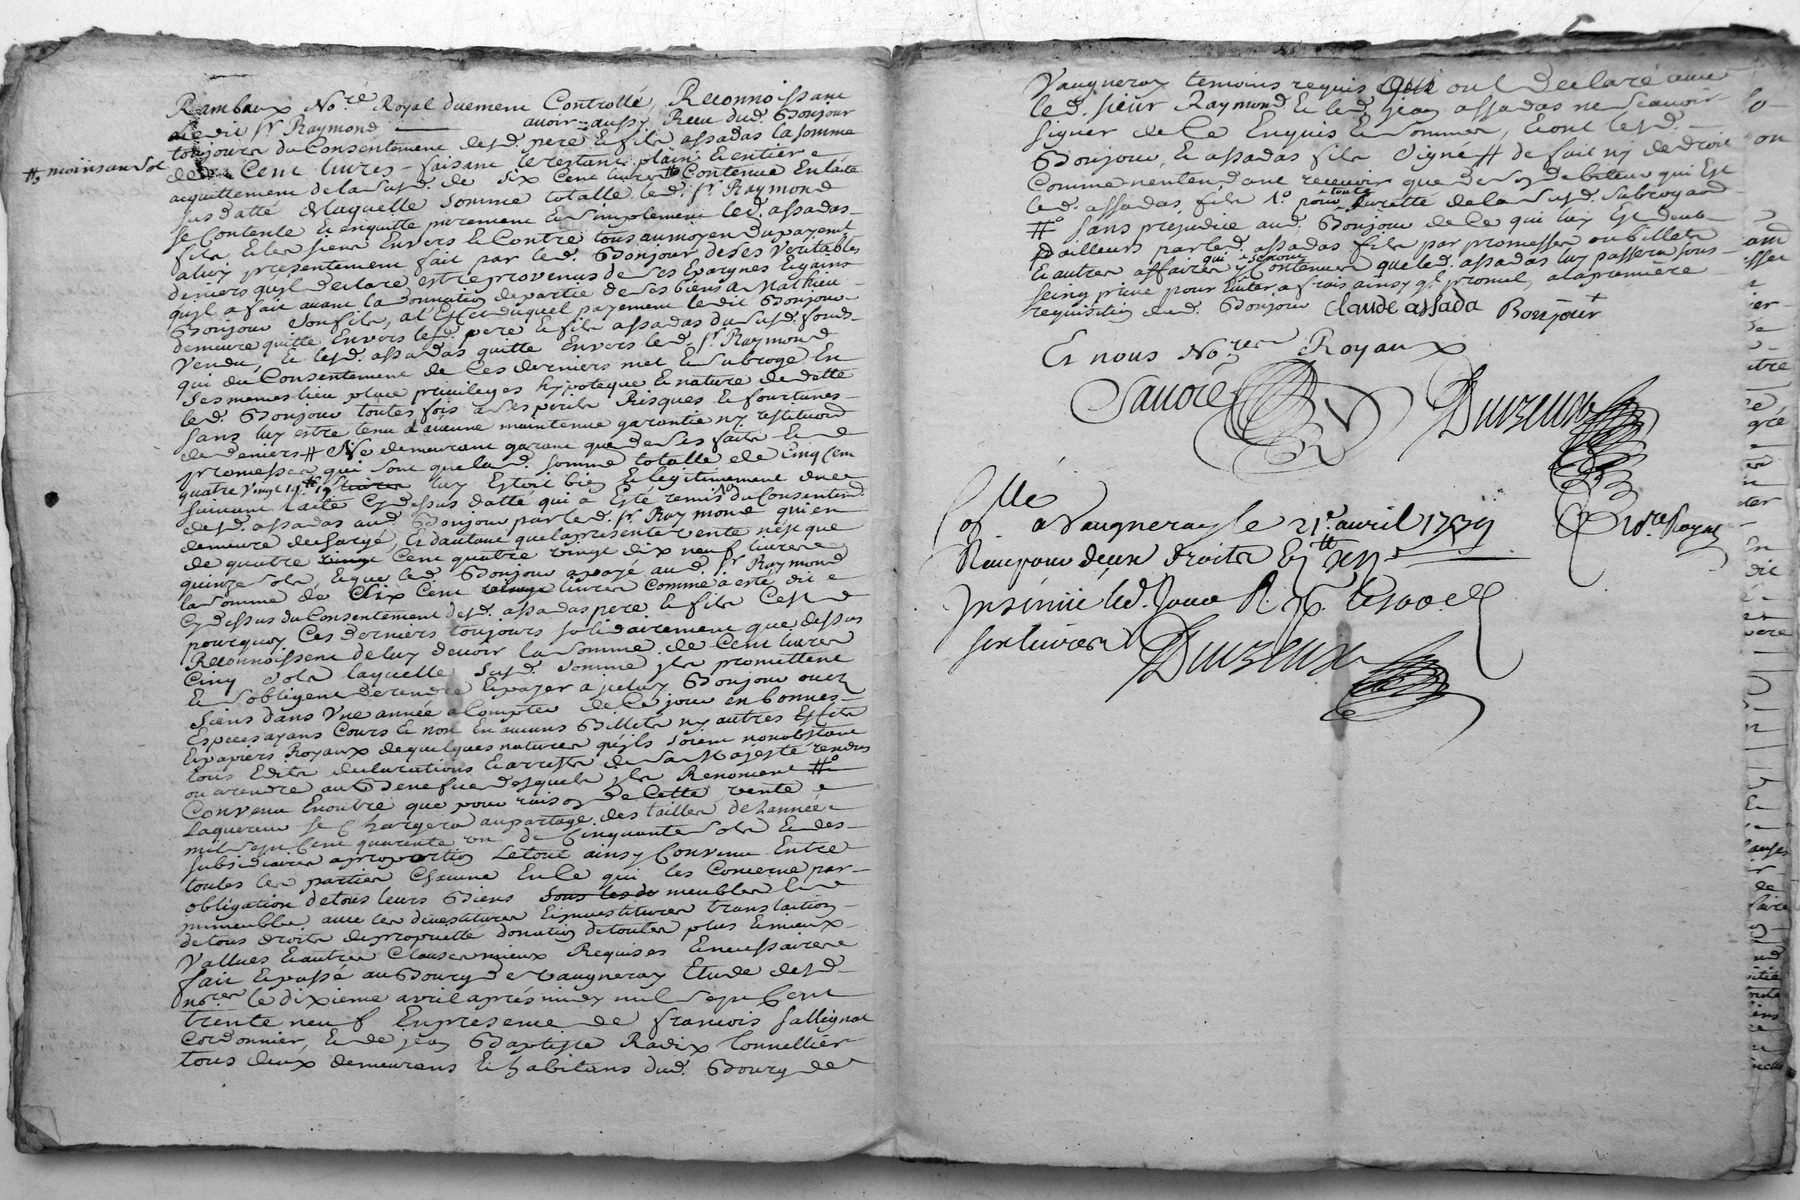 Rambaux No.re Royal duement Controllé, Reconnoissant
ledit Sr Raymond avoir aussy Receu dud. Bonjour
toujours du Consentement desd. pere et fils assadas la somme
# moins un sol
de Cent livres faisant le restant plain et entier
acquittement de la susd. de six Cent livres # Contenue En lacte
susdatté de laquelle somme totalle led. Sr Raymond
se Contente et en quitte purement et simplement led. assadas
fils, et les siens Envers et Contre tous au moyen du payement
a luy presentement fait par led. Bonjour de ses veritables
deniers quil declare estre provenus de ses Epargnes et gains
quil a fait avant la donnation de partie de ses biens a Mathieu
Bonjour son fils, a l'effet duquel payement ledit Bonjour
demeure quitte Envers lesd. pere et fils assadas du susd. fonds
vendu, et lesd. assadas quitte Envers led. Sr Raymond
qui du Consentement de Ces derniers met et subroge En
ses mesmes lieu place privileges hypoteque et nature de dette
led. Bonjour toutes fois a ses perils Risques et fortunes
sans luy estre tenu d'aucune maintenue garantie ny restitution
de deniers # Ne demeurant garant que de ses faits et
promesses qui sont que lad. somme totalle de Cinq Cent
quatre vingt 19 # 19 s luy Estoit bien et legitimement deue
suivant lacte Cy dessus datté qui a Esté remis du Consentement
desd. assadas aud. Bonjour par led. Sr Raymond qui en
demeure dechargé, Et d'autant que la presente vente n'est que
de quatre Cent quatre vingt dix neuf livres
quinze sols, et que led. Bonjour a payé aud. Sr Raymond
la somme de six Cent livres Comme a esté dit
Cy dessus du Consentement desd. assadas pere et fils C'est
pourquoy Ces derniers toujours solidairement que dessus
Reconnoissent de luy devoir la somme de Cent livres
Cinq sols laquelle susd. somme ils promettent
et s'obligent de rendre et payer a iceluy Bonjour ou es
siens dans une année a Compter de Ce jour en bonnes
Especes ayans Cours et non En aucuns Billets ny autres Effets
et papiers Royaux de quelques natures qu'ils soient nonobstant
tous Edits declarations et arrests de sa Majesté rendus
ou a rendre au Benefice desquels ils Renoncent #o
Convenu En outre que pour raison de Cette vente
laquereur se Chargera au partage des tailles de l'année
mil sept Cent quarente un de Cinquante sols et des
subsidiaires a proportion Le tout ainsy Convenu Entre
toutes les parties Chacune En Ce qui les Concerne par
obligation de tous leurs Biens sous les du meubles et
immeubles avec les devestitures et investitures translation
de tous droits de proprietté donation de toutes plus et mieux
vallues et autres Clauses mieux Requises et necessaires
fait et passé au Bourg de vaugneray Etude desd.
no.res le dixieme avril apres midy mil sept Cent
trente neuf En presence de francois sallignat
Cordonnier, et de jean Baptiste Radix Tonnellier
tous deux demeurans et habitans dud. Bourg de
Vaugneray temoins requis Qui ont Declaré avec
led. sieur Raymond et led. jean assadas ne scavoir
signer de Ce Enquis et sommés, et ont lesd.
Bonjour, et assadas fils signé # de fait ny de droit
Comme n'entendant recevoir que de son debiteur qui Est
led. assadas fils 1o. pour toute surette de la susd. subrogaon
#o sans prejudice aud. Bonjour de Ce qui luy Est deub
d'ailleurs par led. assadas fils par promesses ou billets
et autres affaires qui y seront Contenues que led. assadas luy passera sous
seing privé pour Eviter a frais ainsy ql promet, a la premiere
requisition dud. Bonjour claude assada Bonjour
Et nous No.res Royaux
Savoie Duvzeux
No.re Royal
Con.llé a Vaugneray le 21e. avril 1739
Receu pour deux droits
Insinué led. Jour R.
six livres
Duvzeux